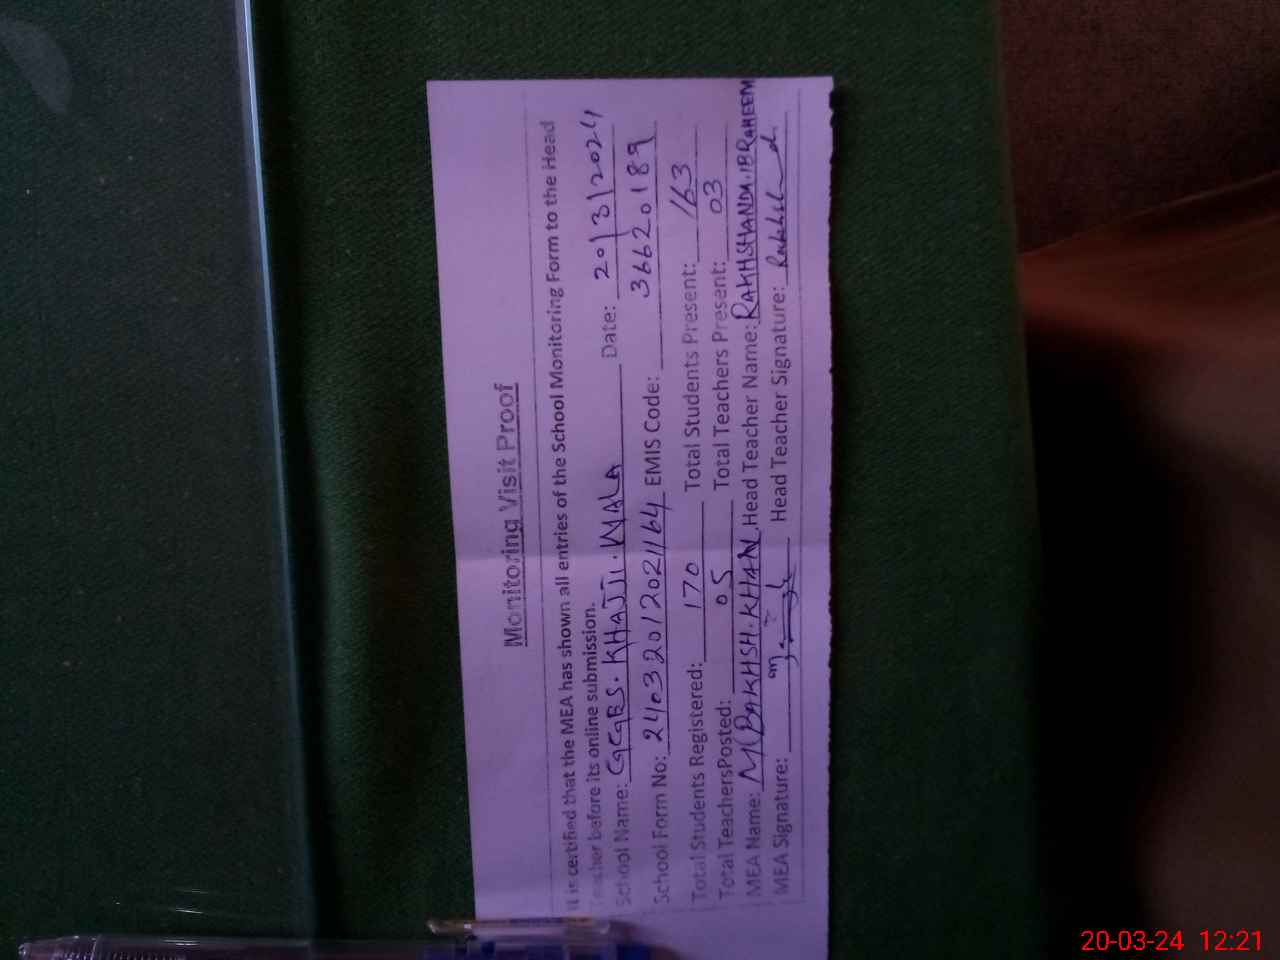 Monitoring Visit Proof
It is certified that the MEA has shown all entries of the School Monitoring Form to the Head
Teacher before its online submission.
School Name: GGPS. KHAJJI. WALA Date: 20/3/2024
School Form No: 24032012021164 EMIS Code: 36620189
Total Students Registered: 170 Total Students Present: 163
Total TeachersPosted: 05 Total Teachers Present: 03
MEA Name: M BAKHSH. KHAN Head Teacher Name: RAKHSHANDA. IBRAHEEM
MEA Signature: Head Teacher Signature:
20-03-24 12:21